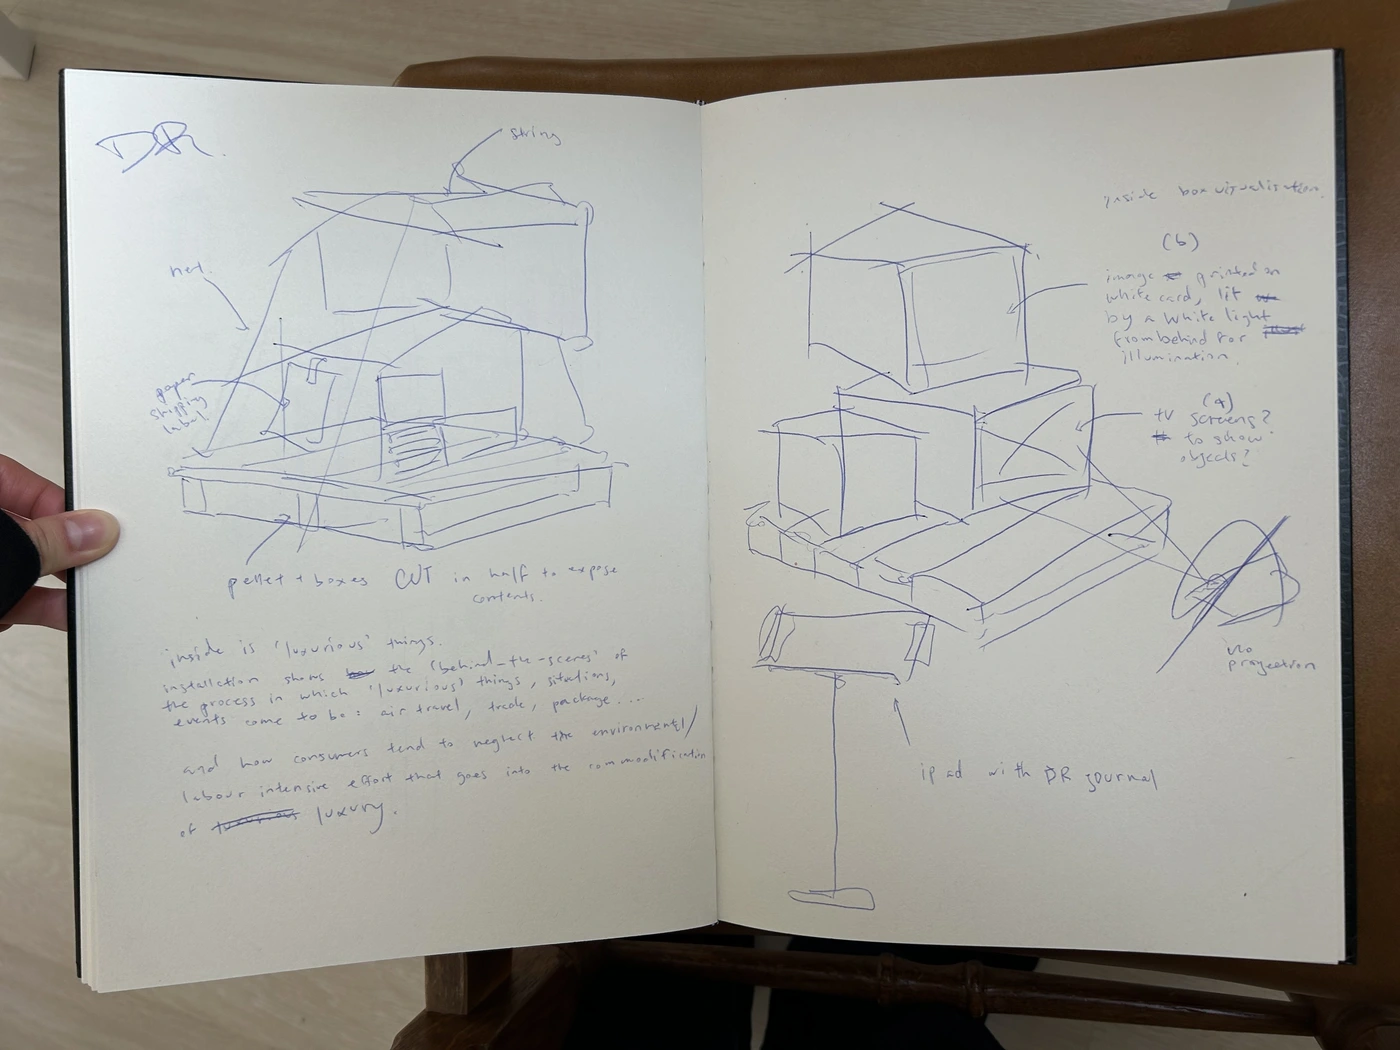 DR.
string
net.
paper
shipping
label
pellet + boxes CUT in half to expose
contents.
inside is 'luxurious' things.
installation shows the 'behind-the-scenes' of
the process in which 'luxurious' things, situations,
events come to be: air travel, trade, package....
and how consumers tend to neglect the environmental/
labour intensive effort that goes into the commodification
of luxurious luxury.
inside box visualisation.
(b)
image printed on
white card, lit
by a white light
from behind for
illumination.
(a)
tv screens?
to show
objects?
no
projection
ipad with DR journal